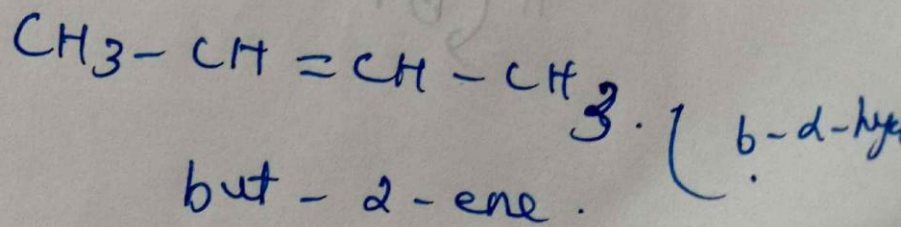 CH3 - CH = CH - CH3. ( b - 2 -
but - 2 - ene.